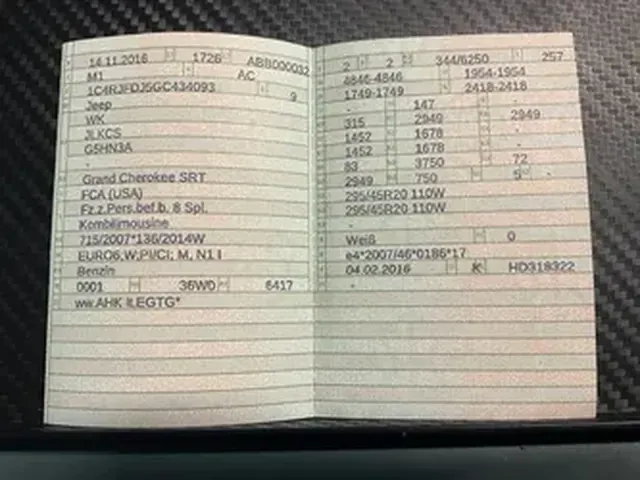 14.11.2016 1726 ABB000032
M1 AC
1C4RJFDJ5GC434093 9
Jeep
WK
JLKCS
G5HN3A
-
Grand Cherokee SRT
FCA (USA)
Fz.z.Pers.bef.b. 8 Spl.
Kombilimousine
715/2007*136/2014W
EURO6;W;PI/CI; M, N1 I
Benzin
0001 36W0 6417
ww.AHK lt.EGTG*
2 2 344/6250 257
4846-4846 1954-1954
1749-1749 2418-2418
- 147 -
315 2949 2949
1452 1678 -
1452 1678 -
83 3750 72
2949 750 5 -
295/45R20 110W
295/45R20 110W
-
Weiß 0
e4*2007/46*0186*17
04.02.2016 K HD318322
-